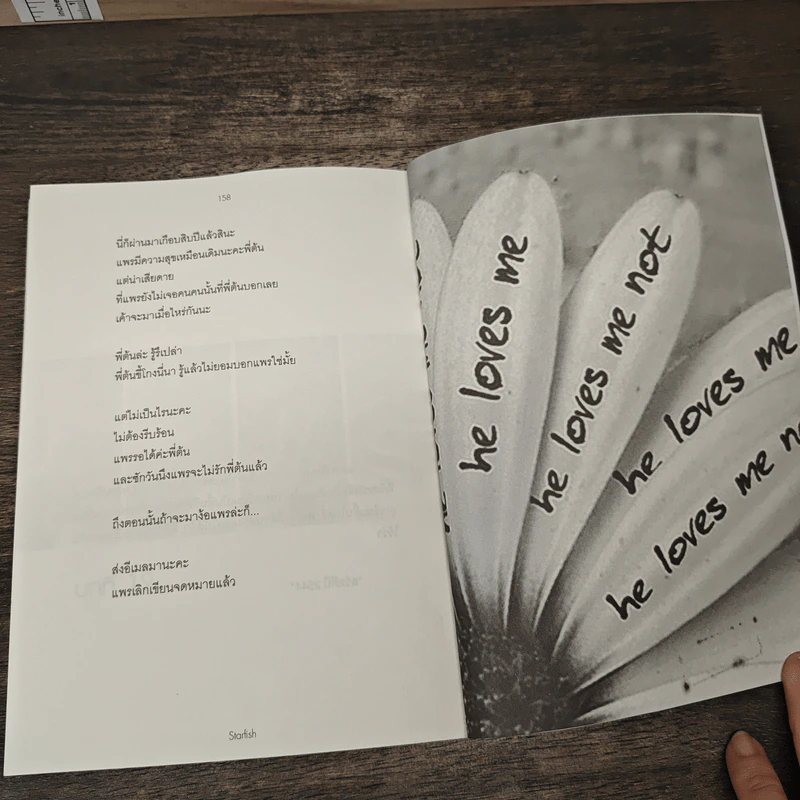 158
นี่ก็ผ่านมาเกือบสิบปีแล้วสินะ
แพรมีความสุขเหมือนเดิมนะคะพี่ต้น
แต่น่าเสียดาย
ที่แพรยังไม่เจอคนคนนั้นที่พี่ต้นบอกเลย
เค้าจะมาเมื่อไหร่กันนะ
พี่ต้นล่ะ รู้รึเปล่า
พี่ต้นขี้โกงนี่นา รู้แล้วไม่ยอมบอกแพรใช่มั้ย
แต่ไม่เป็นไรนะคะ
ไม่ต้องรีบร้อน
แพรรอได้ค่ะพี่ต้น
และซักวันนึงแพรจะไม่รักพี่ต้นแล้ว
ถึงตอนนั้นถ้าจะมาง้อแพรล่ะก็...
ส่งอีเมลมานะคะ
แพรเลิกเขียนจดหมายแล้ว
Starfish
he loves me
he loves me not
he loves me
he loves me